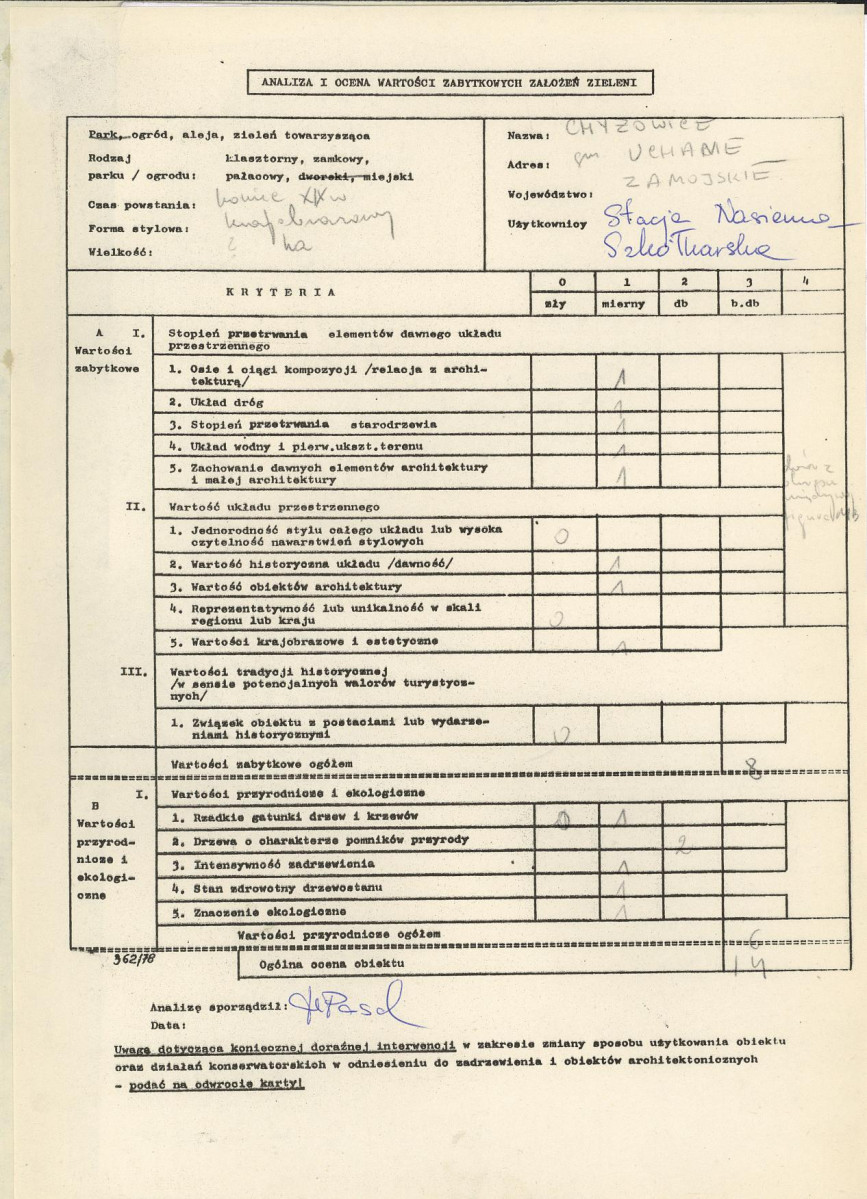 ANALIZA I OCENA WARTOŚCI ZABYTKOWYCH ZAŁOŻEŃ ZIELENI
Park, ogród, aleja, zieleń towarzysząca
Rodzaj klasztorny, zamkowy,
parku / ogrodu: pałacowy, dworski, miejski
Czas powstania: koniec XIX w
Forma stylowa: krajobrazowy
Wielkość: 2 ha
Nazwa: CHYŻOWICE
Adres: gm UCHANIE
ZAMOJSKIE
Województwo:
Użytkownicy Stacja Nasienno
Szkółkarska
KRYTERIA
0 1 2 3 4
zły mierny db b.db
A I. Stopień przetrwania elementów dawnego układu
przestrzennego
Wartości
zabytkowe
1. Osie i ciągi kompozycji /relacja z archi-
tekturą/ 1
2. Układ dróg 1
3. Stopień przetrwania starodrzewia 1
4. Układ wodny i pierw.ukszt.terenu 1
5. Zachowanie dawnych elementów architektury
i małej architektury 1
II. Wartość układu przestrzennego
1. Jednorodność stylu całego układu lub wysoka
czytelność nawarstwień stylowych 0
2. Wartość historyczna układu /dawność/ 1
3. Wartość obiektów architektury 1
4. Reprezentatywność lub unikalność w skali
regionu lub kraju 0
5. Wartości krajobrazowe i estetyczne 1
III. Wartości tradycji historycznej
/w sensie potencjalnych walorów turystycz-
nych/
1. Związek obiektu z postaciami lub wydarze-
niami historycznymi 0
Wartości zabytkowe ogółem 8
I. Wartości przyrodnicze i ekologiczne
B
Wartości
przyrod-
nicze i
ekologi-
czne
1. Rzadkie gatunki drzew i krzewów 0 1
2. Drzewa o charakterze pomników przyrody 2
3. Intensywność zadrzewienia 1
4. Stan zdrowotny drzewostanu 1
5. Znaczenie ekologiczne 1
Wartości przyrodnicze ogółem 6
362/78
Ogólna ocena obiektu 14
Analizę sporządził:
Data:
Uwagę dotycząca koniecznej doraźnej interwencji w zakresie zmiany sposobu użytkowania obiektu
oraz działań konserwatorskich w odniesieniu do zadrzewienia i obiektów architektonicznych
- podać na odwrocie karty!